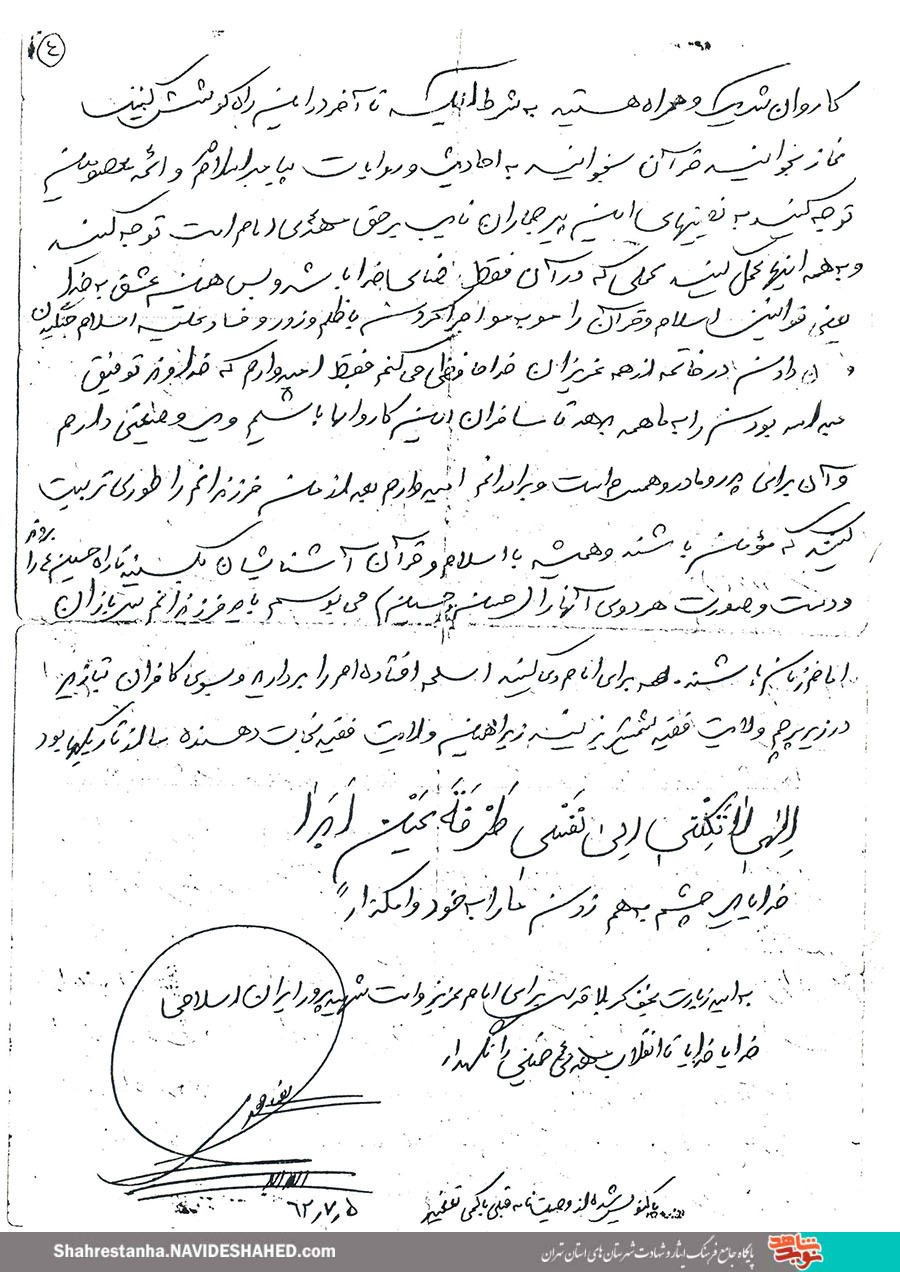 ٤
کاروان شریک و همراه هستید به شرط اینکه تا آخر در این راه کوشش کنید
نماز بخوانید قرآن بخوانید به احادیث و روایات پیامبر اسلام و ائمه معصومین
توجه کنید به نصیحتهای این پیر جماران نایب برحق مهدی امام امت توجه کنید
و به همه اینها عمل کنید عملی که در آن فقط رضای خدا باشد و بس یعنی عشق به خدا
یعنی قوانین اسلام و قرآن را مو به مو اجرا کردن با ظلم و زور و فساد علیه اسلام جنگیدن
و دادن در خاتمه از همه عزیزان خداحافظی می کنم فقط امیدوارم که خداوند توفیق
بودن را به ما همه بدهد تا مسافران این کاروانها باشیم و وصیتی دارم
و آن برای پدر و مادر و همسرم است و برادرانم امیدوارم بعد از من فرزندانم را طوری تربیت
کنید که مؤمن باشند و همیشه با اسلام و قرآن آشنایشان بکنید تا راه حسین ع را بروند
و دست و صورت هر دوی آنها را (حسن و حسین) می بوسم باید فرزندانم سربازان
امام زمان باشند. همه برای امام دعا کنید اسلحه افتاده ام را بردارید و بسوی کافران بتازید
در زیر پرچم ولایت فقیه شمشیر بزنید زیرا همین ولایت فقیه نجات دهنده ما از تاریکیها بود
اِلهی لا تَکِلْنی اِلی نَفْسی طَرْفَةَ عَیْنٍ اَبَداً
خدایا یک چشم به هم زدن ما را به خود وامگذار"
به امید زیارت نجف کربلا قدس برای امام عزیز و امت شهید پرور ایران اسلامی
خدایا خدایا تا انقلاب مهدی خمینی را نگهدار
٦٢٫٧٫٥
پاکنویس شده از وصیتنامه قبلی با کمی تغییر
Shahrestanha.NAVIDESHAHED.com
پایگاه جامع فرهنگ ایثار و شهادت شهرستان های استان تهران
نوید شاهد